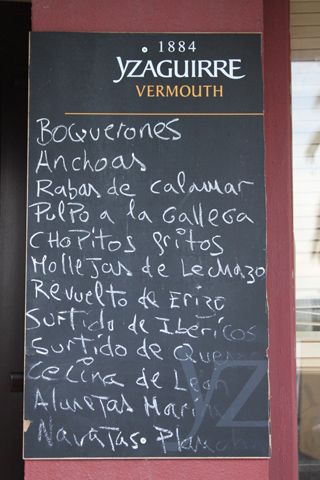 1884
YZAGUIRRE
VERMOUTH
Boquerones
Anchoas
Rabas de calamar
Pulpo a la Gallega
CHOPITOS fritos
Mollejas de Lechazo
Revuelto de Erizo
Surtido de Ibéricos
Surtido de
Cecina de León
Marin
Navajas
YZ